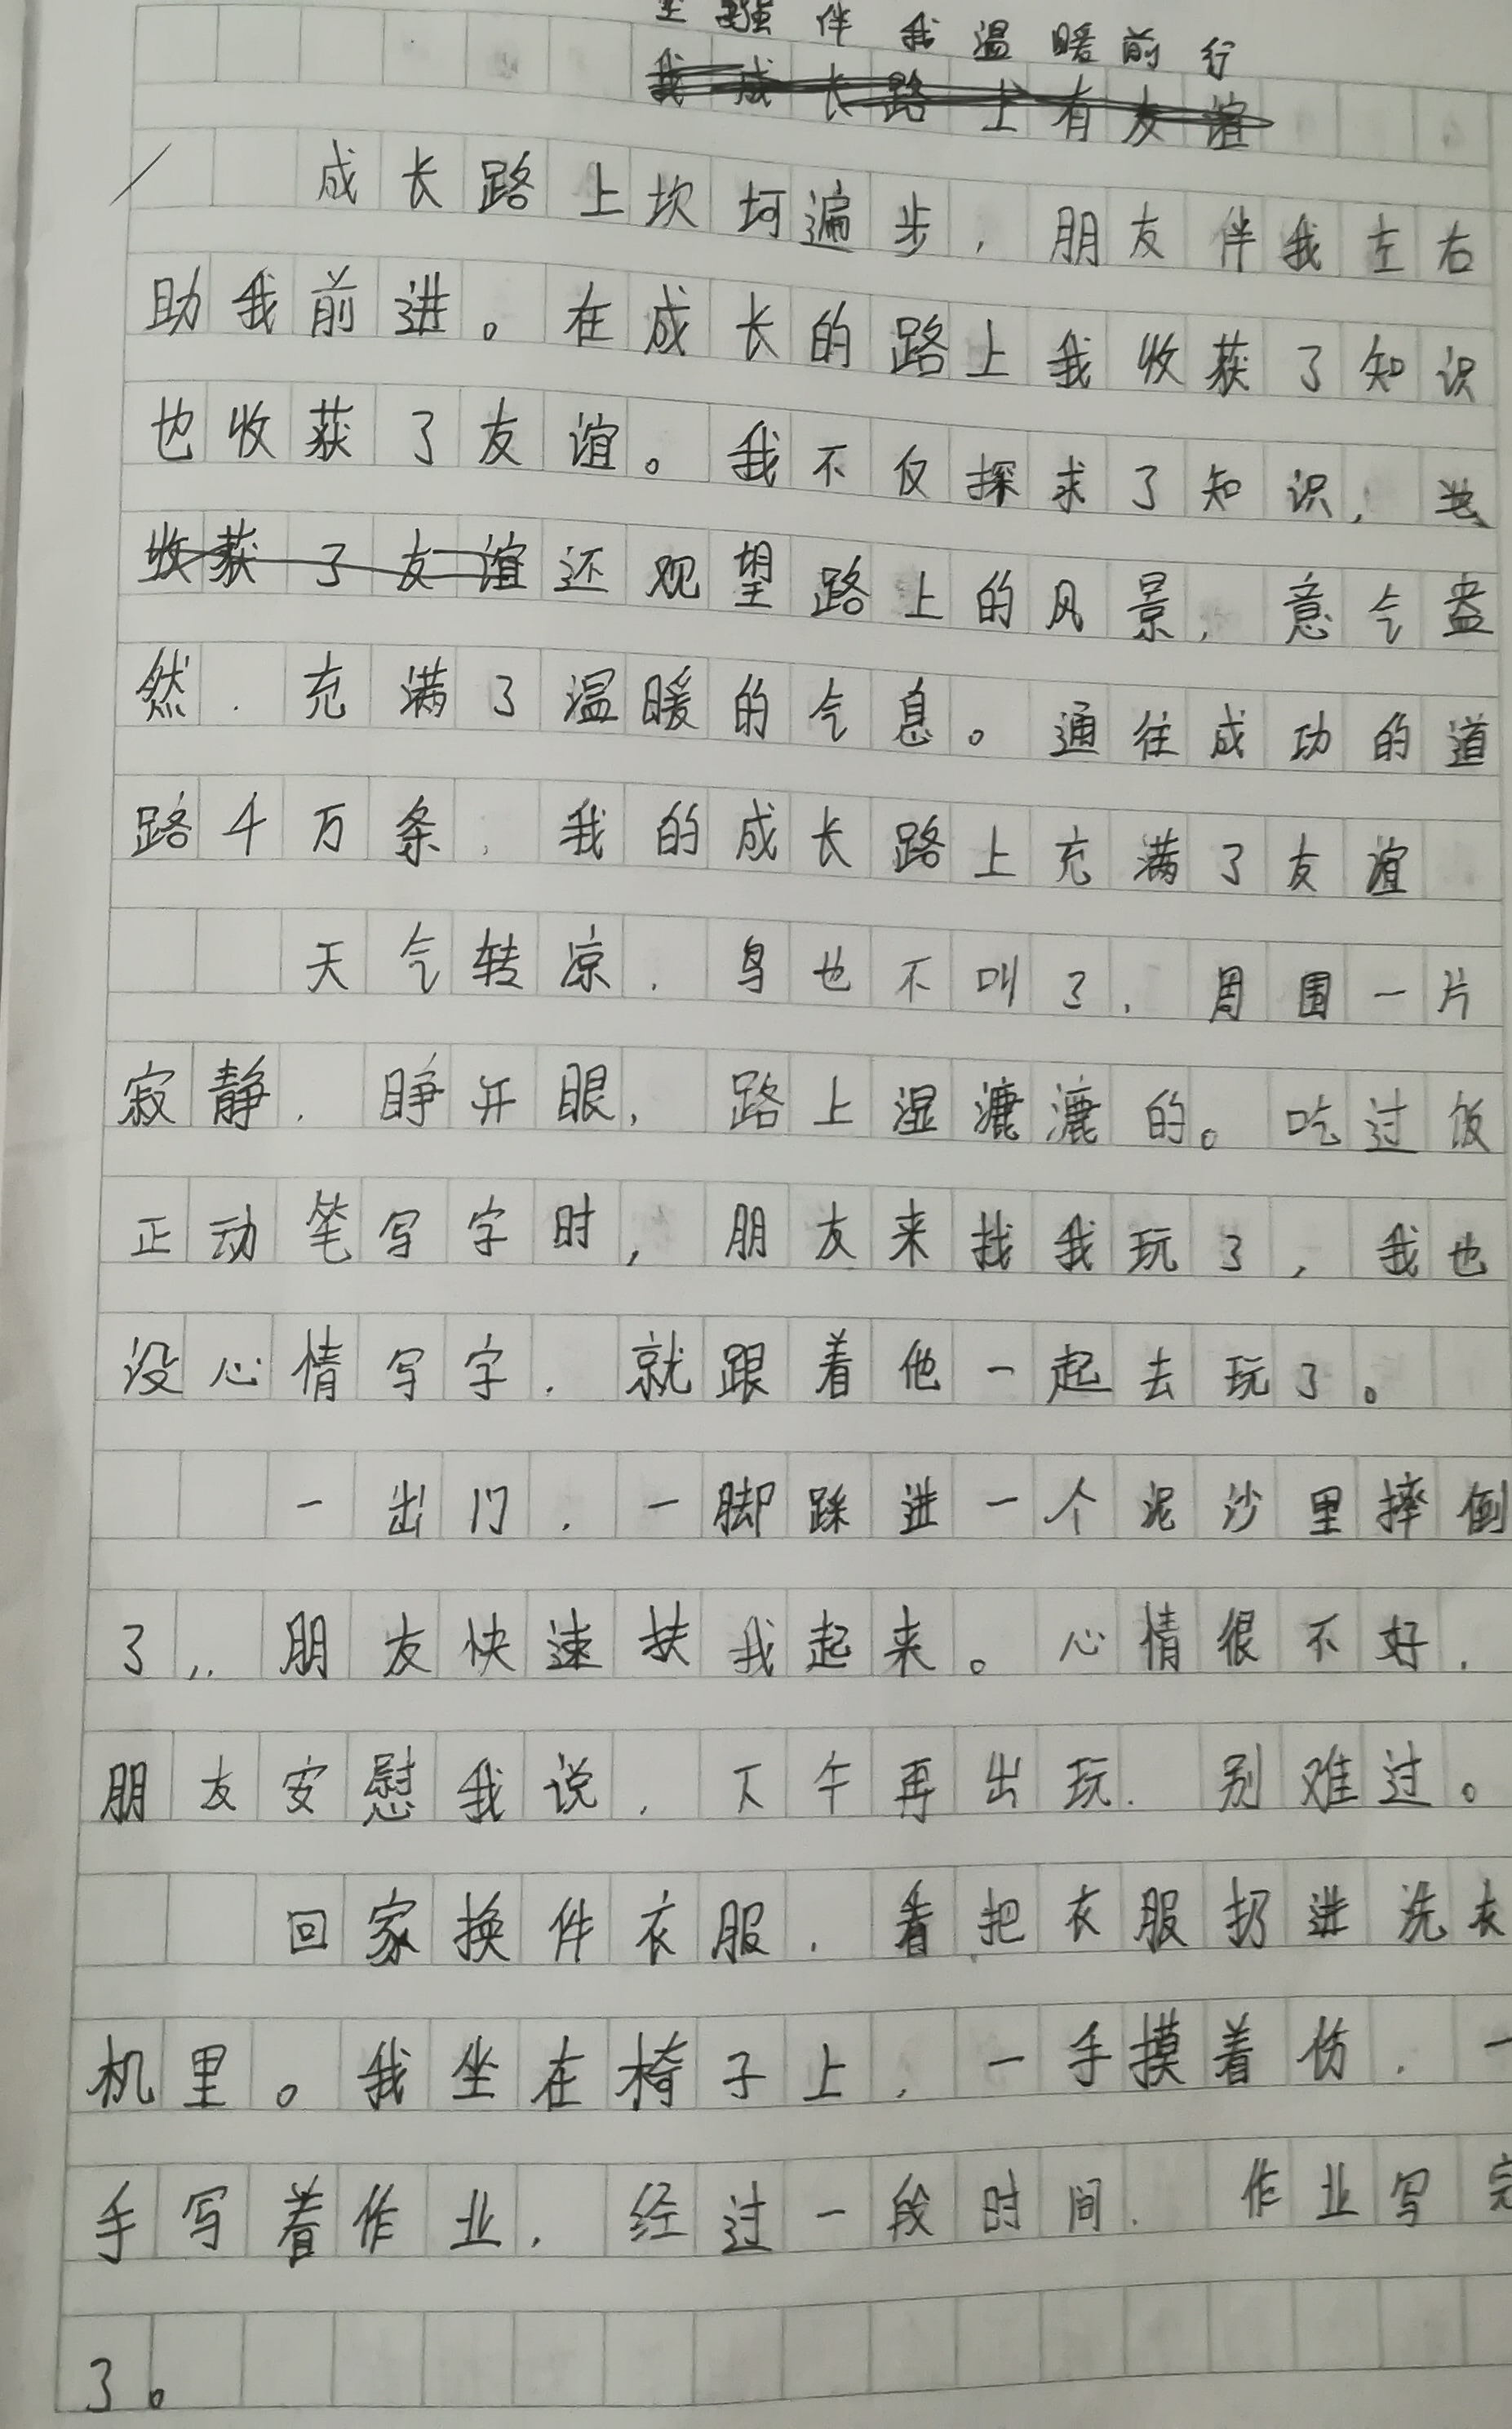 坚强伴我温暖前行
我成长路上有友谊
成长路上坎坷遍步,朋友伴我左右
助我前进。在成长的路上我收获了知识
也收获了友谊。我不仅探求了知识,也
收获了友谊还观望路上的风景,意气盎
然,充满了温暖的气息。通往成功的道
路千万条,我的成长路上充满了友谊
天气转凉,鸟也不叫了,周围一片
寂静,睁开眼,路上湿漉漉的。吃过饭
正动笔写字时,朋友来找我玩了,我也
没心情写字,就跟着他一起去玩了。
一出门,一脚踩进一个泥沙里摔倒
了,,朋友快速扶我起来。心情很不好,
朋友安慰我说,下午再出玩,别难过。
回家换件衣服,看把衣服扔进洗衣
机里。我坐在椅子上,一手摸着伤,一
手写着作业,经过一段时间,作业写完
了。